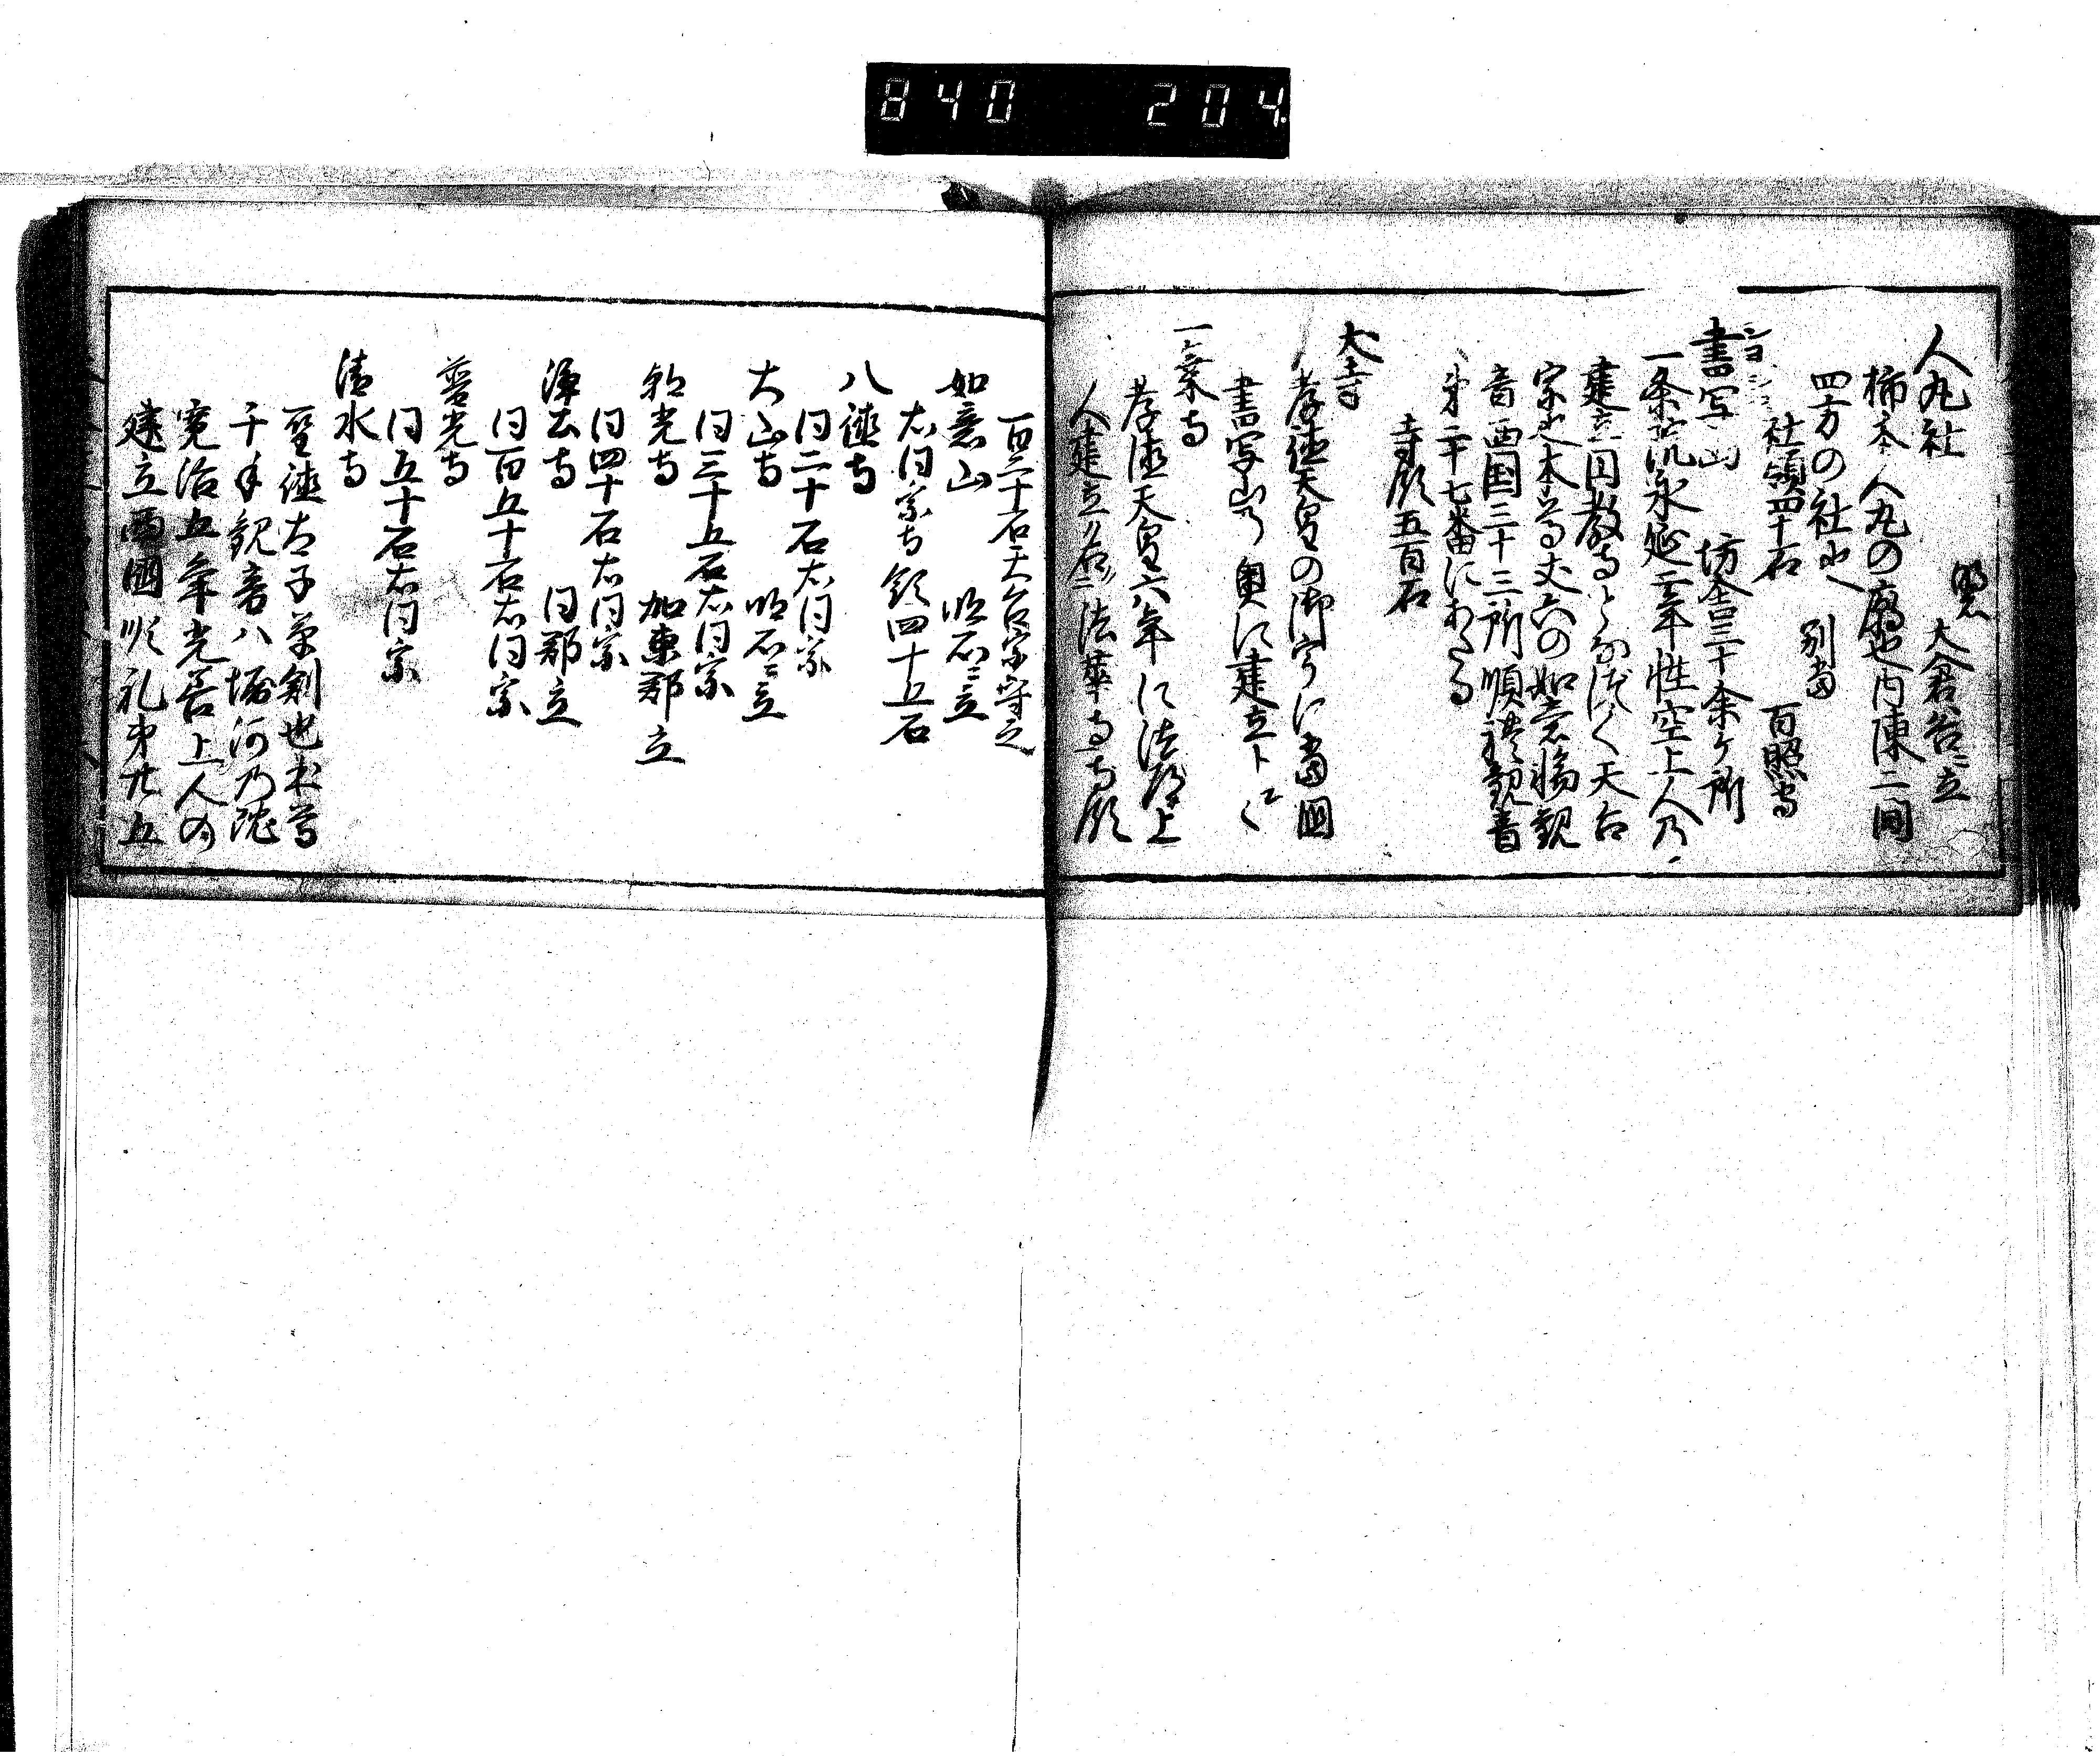 840 204
人丸社 大倉谷ニ立
柿本人丸の廟也内陳二間
四方の社也 別当
社領四十石
書写山 坊舎三十余ケ所
一条院永延二年性空上人乃
建立円教寺となづく天台
宗也本尊丈六の如意輪観
音西国三十三所順礼観音
第二十七番にあたる
寺領五百石
大寺
孝徳天皇の御宇に当国
書写山の奥に建立ト云々
一乗寺
孝徳天皇六年に法道上
人建立名ニ法華寺寺領
百二十石天台宗守之
如意山 明石ニ立
右同宗寺領四十五石
八徳寺
同二十石右同宗
大山寺 明石ニ立
同三十五石右同宗
朝光寺 加東郡立
同四十石右同宗
浄土寺 同郡立
同百五十石右同宗
普光寺
同五十石右同宗
清水寺
聖徳太子草創也本尊
千手観音八堀河乃院
寛治五年光善上人の
建立西国順礼第廿五